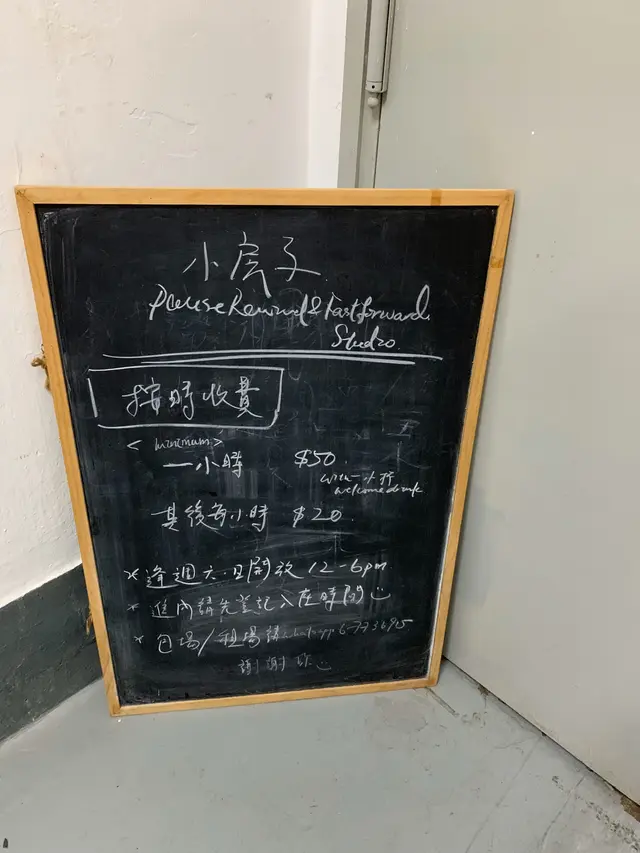 小房子
Pause Rewind & Fastforward
Studio.
按時收費
< minimum >
一小時 $50.
with 一小杯
welcome drink
其後每小時 $20.
* 逢週六.日開放 12-6pm
* 進內請先登記入在時間
* 包場/租場請whatsapp
謝謝你